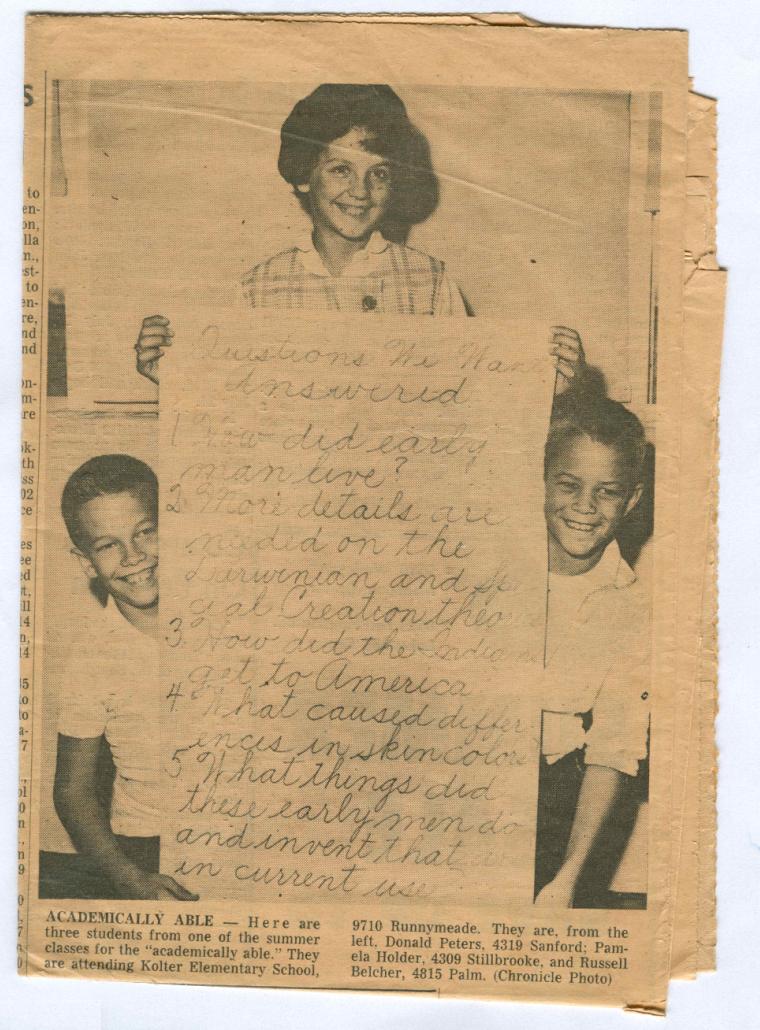 S
to
en-
on,
lla
n.,
est-
to
en-
re,
nd
nd
on-
m-
re
ok-
th
ss
02
ce
es
ee
ed
ot,
ill
14
n,
14
Questions We Want
Answered
1 How did early
man live?
2 More details are
needed on the
Darwinian and Spe
cial Creation theo
3. How did the Indians
get to America
4. What caused differ-
ences in skin colors
5 What things did
these early men do
and invent that
in current use
ACADEMICALLY ABLE — Here are
three students from one of the summer
classes for the "academically able." They
are attending Kolter Elementary School,
9710 Runnymeade. They are, from the
left, Donald Peters, 4319 Sanford; Pam-
ela Holder, 4309 Stillbrooke, and Russell
Belcher, 4815 Palm. (Chronicle Photo)